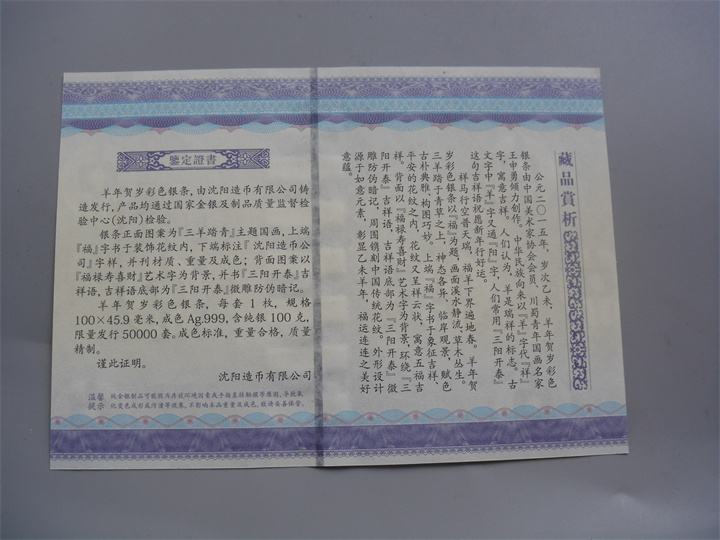 鑒定證書
羊年贺岁彩色银条，由沈阳造币有限公司铸
造发行，产品均通过国家金银及制品质量监督检
验中心（沈阳）检验。
银条正面图案为『三羊踏青』主题国画，上端
『福』字书于装饰花纹内，下端标注『沈阳造币公
司』字样，并刊材质、重量及成色；背面图案以
『福禄寿喜财』艺术字为背景，并书『三阳开泰』吉
祥语，吉祥语底部为『三阳开泰』微雕防伪暗记。
羊年贺岁彩色银条，每套1枚，规格
100×45.9毫米，成色Ag.999，含纯银100克，
限量发行50000套。成色标准，重量合格，质量
精制。
谨此证明。
沈阳造币有限公司
温馨
提示
纯金银制品可能因为存放环境因素或手指直接触摸等原因，导致氧
化变色或形成污渍等现象，不影响本品重量及成色，敬请妥善保管。
藏品赏析
公元二〇一五年，岁次乙未，羊年贺岁彩色
银条由中国美术家协会会员、川蜀青年国画名家
王申勇倾力创作。中华民族向来以『羊』字代『祥』
字，寓意吉祥。人们认为，羊是瑞祥的标志。古
文字中『羊』字又通『阳』字，人们常用『三阳开泰』
这句吉祥语祝愿新年行好运。
祥马行空普天瑞，福羊下界遍地春。羊年贺
岁彩色银条以『福』为题，画面溪水静流，草木丛生。
三羊踏于青草之上，神态各异，临岸观景，赋色
古朴典雅，构图巧妙。上端『福』字书于象征吉祥、
平安的花纹之内，花纹又呈祥云状，寓意五福吉
祥。背面以『福禄寿喜财』艺术字为背景，环绕『三
阳开泰』吉祥语，吉祥语底部为『三阳开泰』微
雕防伪暗记，周围镌刻中国传统花纹。外形设计
源于如意元素，彰显乙未羊年，福运连连之美好
意蕴。